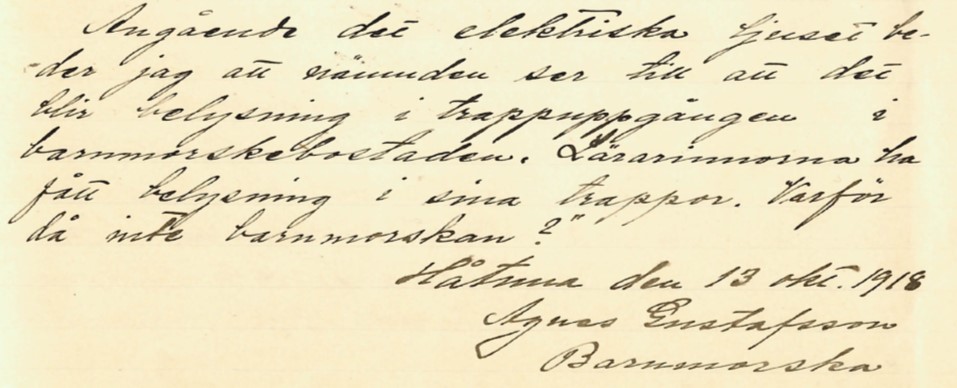 Angående det elektriska ljuset be-
-der jag att nämnden ser till att det
blir belysning i trappuppgången i
barnmorskebostaden. Lärarinnorna ha
fått belysning i sina trappor. Varför
då inte barnmorskan?"
Håtuna den 13 okt. 1918
Agnes Gustafsson
Barnmorska